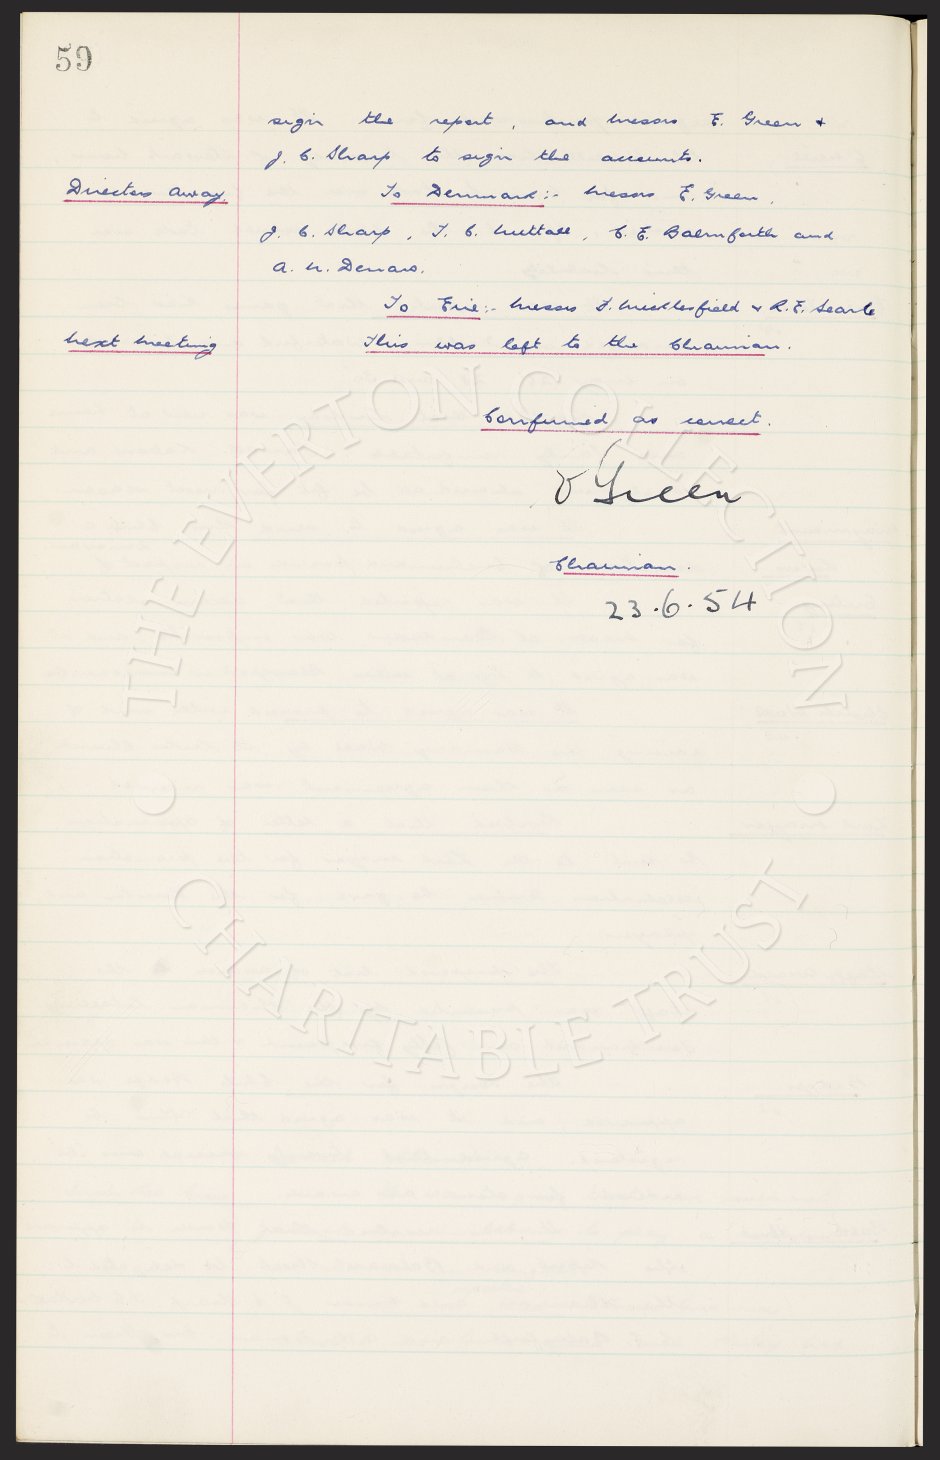 59
sign the report, and Messrs E. Green &
J. C. Sharp to sign the accounts.
Directors Away. To Denmark:- Messrs E. Green,
J. C. Sharp, T. C. Nuttall, C. E. Balmforth and
A. N. Denaro.
To Eire:- Messrs F. Micklesfield & R. E. Searle
Next Meeting This was left to the Chairman.
Confirmed as correct.
E Green
Chairman.
23.6.54
THE EVERTON COLLECTION
CHARITABLE TRUST